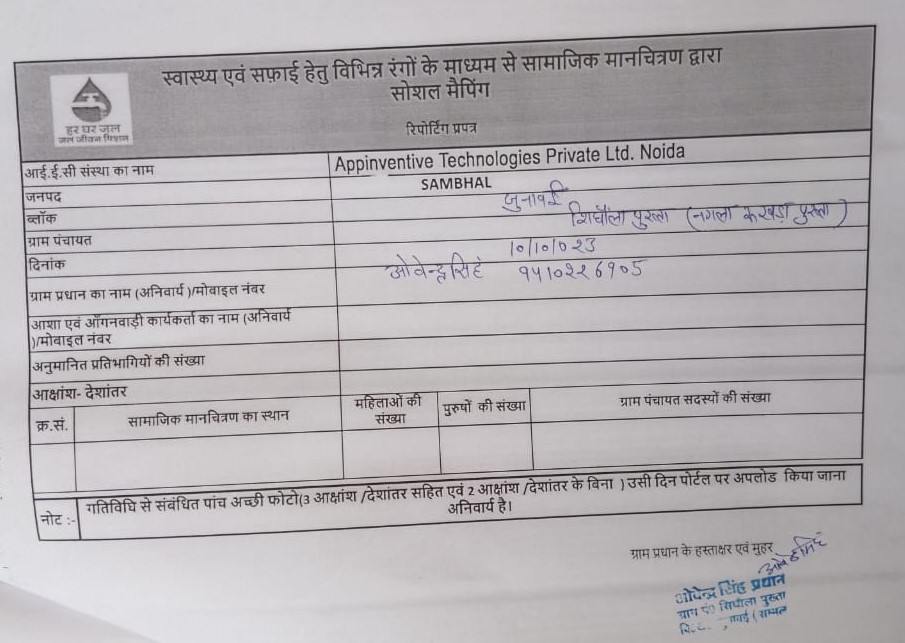 स्वास्थ्य एवं सफ़ाई हेतु विभिन्न रंगों के माध्यम से सामाजिक मानचित्रण द्वारा
सोशल मैपिंग
रिपोर्टिंग प्रपत्र
हर घर जल
जल जीवन मिशन
आई.ई.सी संस्था का नाम Appinventive Technologies Private Ltd. Noida
जनपद SAMBHAL
ब्लॉक जुनावई
ग्राम पंचायत पुख्ता (नगला पुख्ता)
दिनांक
ग्राम प्रधान का नाम (अनिवार्य )/मोबाइल नंबर ओवेन्द्र सिंह
आशा एवं आँगनवाड़ी कार्यकर्ता का नाम (अनिवार्य
)/मोबाइल नंबर
अनुमानित प्रतिभागियों की संख्या
आक्षांश- देशांतर
क्र.सं. सामाजिक मानचित्रण का स्थान महिलाओं की संख्या पुरुषों की संख्या ग्राम पंचायत सदस्यों की संख्या
नोट :- गतिविधि से संबंधित पांच अच्छी फोटो(3 आक्षांश /देशांतर सहित एवं 2 आक्षांश /देशांतर के बिना ) उसी दिन पोर्टल पर अपलोड किया जाना
अनिवार्य है।
ग्राम प्रधान के हस्ताक्षर एवं मुहर
ओपेन्द्र सिंह प्रधान
ग्राम पं० सिघौला पुख्ता